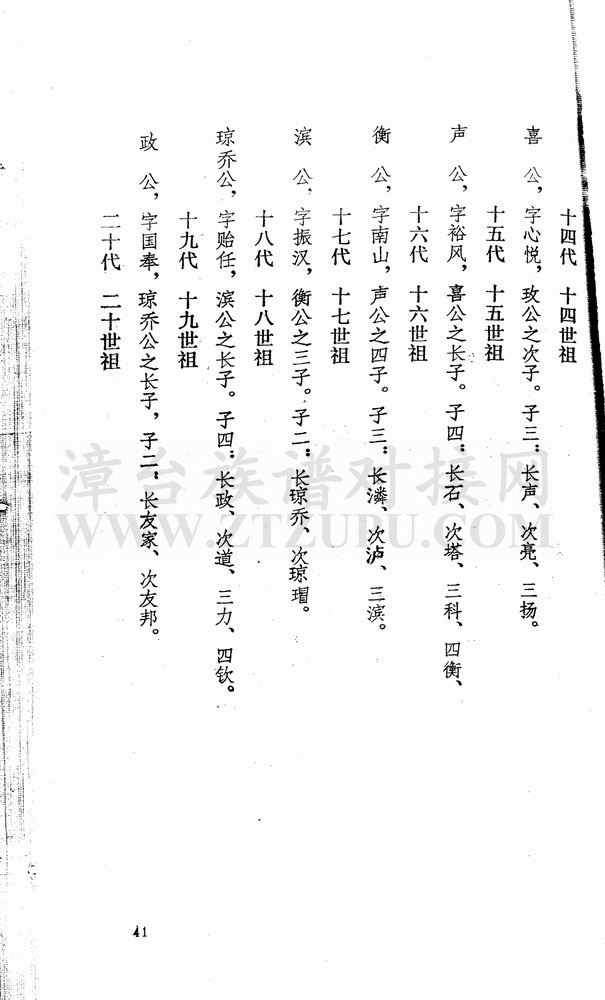 十四代 十四世祖
喜 公，字心悦，玫公之次子。子三：长声、次亮、三扬。
十五代 十五世祖
声 公，字裕风，喜公之长子。子四：长石、次塔、三科、四衡、
十六代 十六世祖
衡 公，字南山，声公之四子。子三：长潾、次泸、三滨。
十七代 十七世祖
滨 公，字振汉，衡公之三子。子二：长琼乔、次琼瑁。
十八代 十八世祖
琼乔公，字贻任，滨公之长子。子四：长政、次道、三力、四钦。
十九代 十九世祖
政 公，字国奉，琼乔公之长子，子二：长友家、次友邦。
二十代 二十世祖
41
漳台族谱对接网
WWW.ZTZUPU.COM